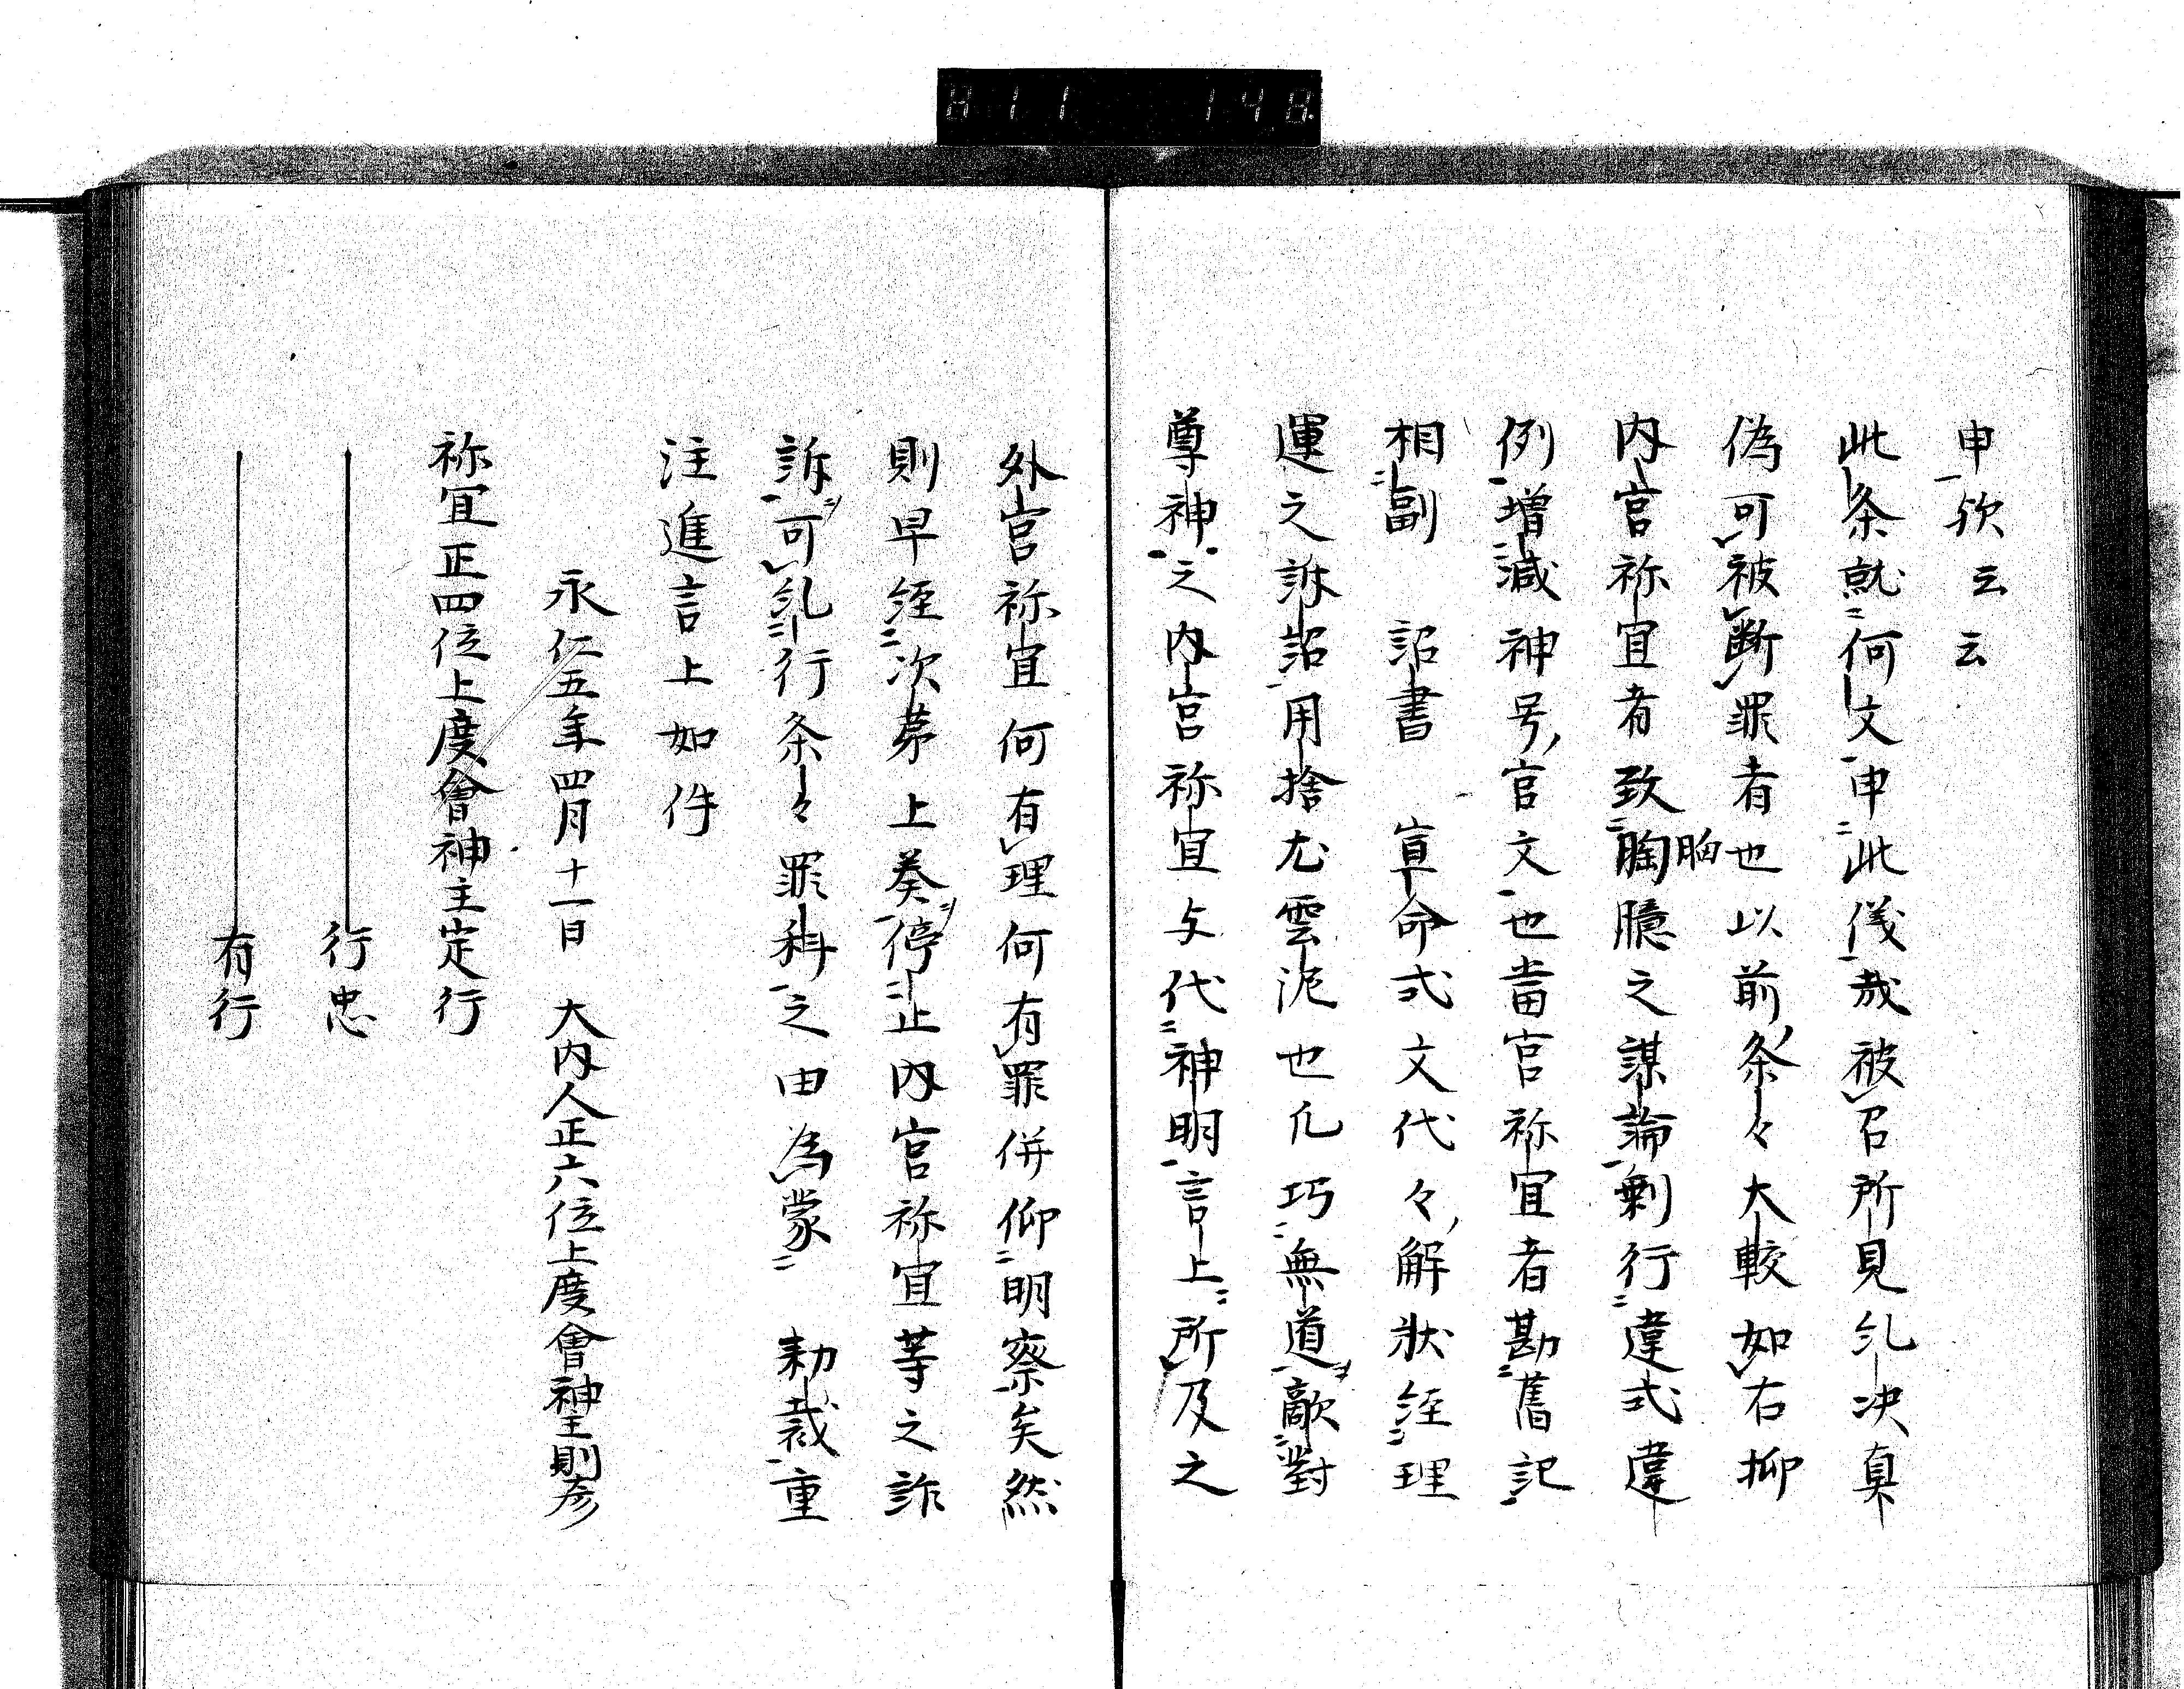 811 148
申欤云云
此条就何文申此儀哉被召所見糺决真
偽可被断罪者也以前条々大較如右抑
内宮祢宜者致胸臆之謀論剰行違式違
胸
例増減神号官文也当宮祢宜者勘舊記
相副 詔書 宣命式文代々解状経理
運之訴詔用捨尤雲泥也凢巧無道敵對
尊神之内宮祢宜与代神明言上所及之
外宮祢宜何有理何有罪併仰明察矣然
則早経次第上奏停止内宮祢宜等之詐
訴可糺行条々罪科之由為蒙 勅裁重
注進言上如件
永仁五年四月十一日 大内人正六位上度會神主則彦
祢宜正四位上度會神主定行
行忠
有行